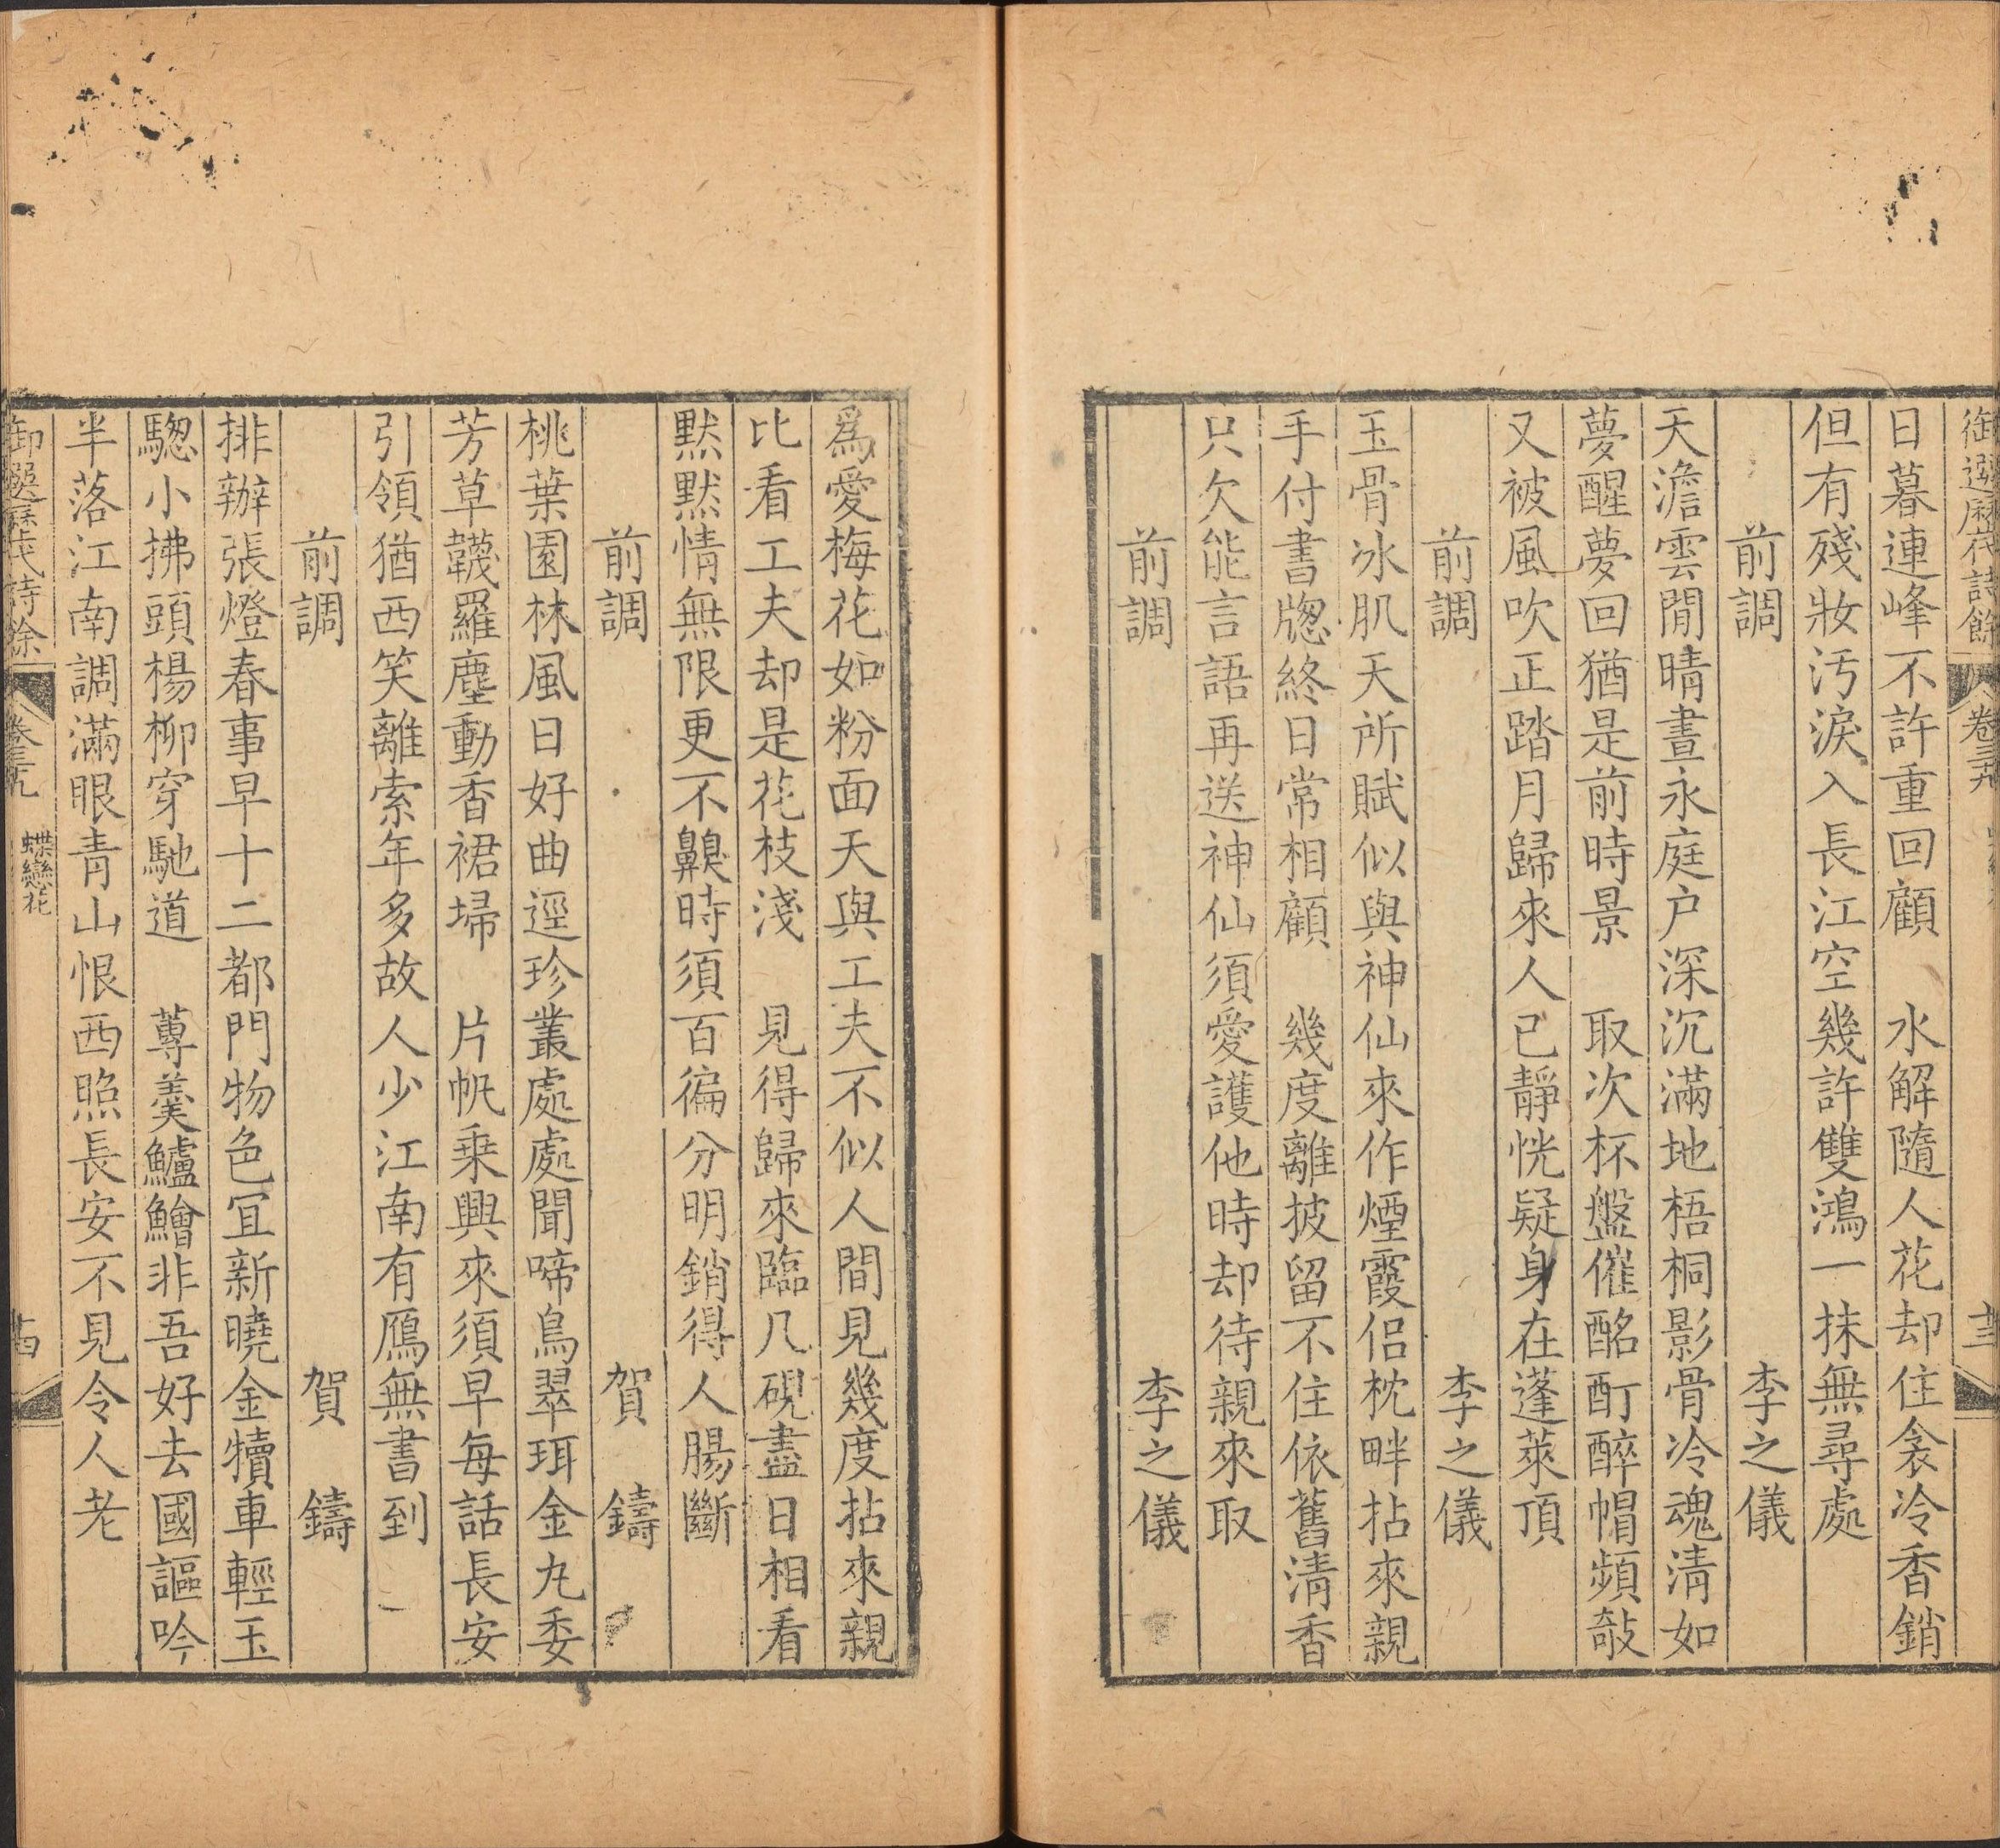 御選歷代詩餘 卷三十九 十三
日暮連峰不許重回顧　水解隨人花却住衾冷香銷
但有殘妝汚淚入長江空幾許雙鴻一抹無尋處
前調　李之儀
天澹雲閒晴晝永庭户深沉滿地梧桐影骨冷魂清如
夢醒夢回猶是前時景　取次杯盤催酩酊醉帽頻敧
又被風吹正踏月歸來人已靜恍疑身在蓬萊頂
前調　李之儀
玉骨冰肌天所賦似與神仙來作煙霞侶枕畔拈來親
手付書牎終日常相顧　幾度離披留不住依舊清香
只欠能言語再送神仙須愛護他時却待親來取
前調　李之儀
爲愛梅花如粉面天與工夫不似人間見幾度拈來親
比看工夫却是花枝淺　見得歸來臨几硯盡日相看
默默情無限更不齅時須百徧分明銷得人腸斷
前調　賀鑄
桃葉園林風日好曲逕珍叢處處聞啼鳥翠珥金丸委
芳草韈羅塵動香裙埽　片帆乗興來須早每話長安
引領猶西笑離索年多故人少江南有鴈無書到
前調　賀鑄
排辦張燈春事早十二都門物色冝新曉金犢車輕玉
驄小拂頭楊柳穿馳道　蓴羹鱸鱠非吾好去國謳吟
半落江南調滿眼青山恨西照長安不見令人老
御選歷代詩餘 卷三十九 蝶戀花 十四